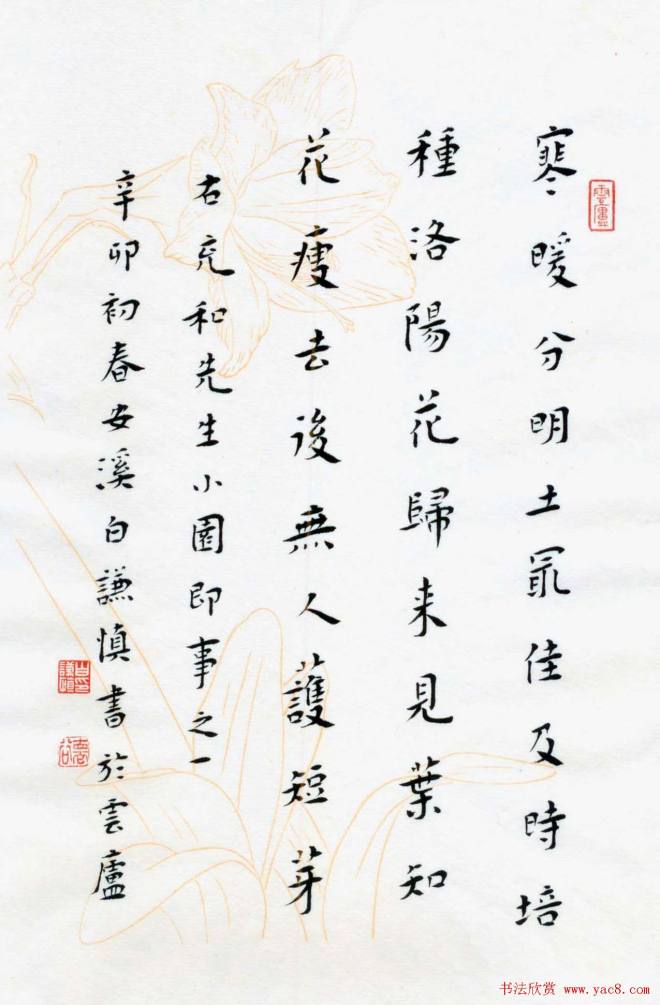 雲廬
寒暖分明土最佳及時培
種洛陽花歸来見葉知
花瘦去後無人護短芽
右充和先生小園即事之一
辛卯初春安溪白謙慎書於雲廬
书法欣赏 www.yac8.com